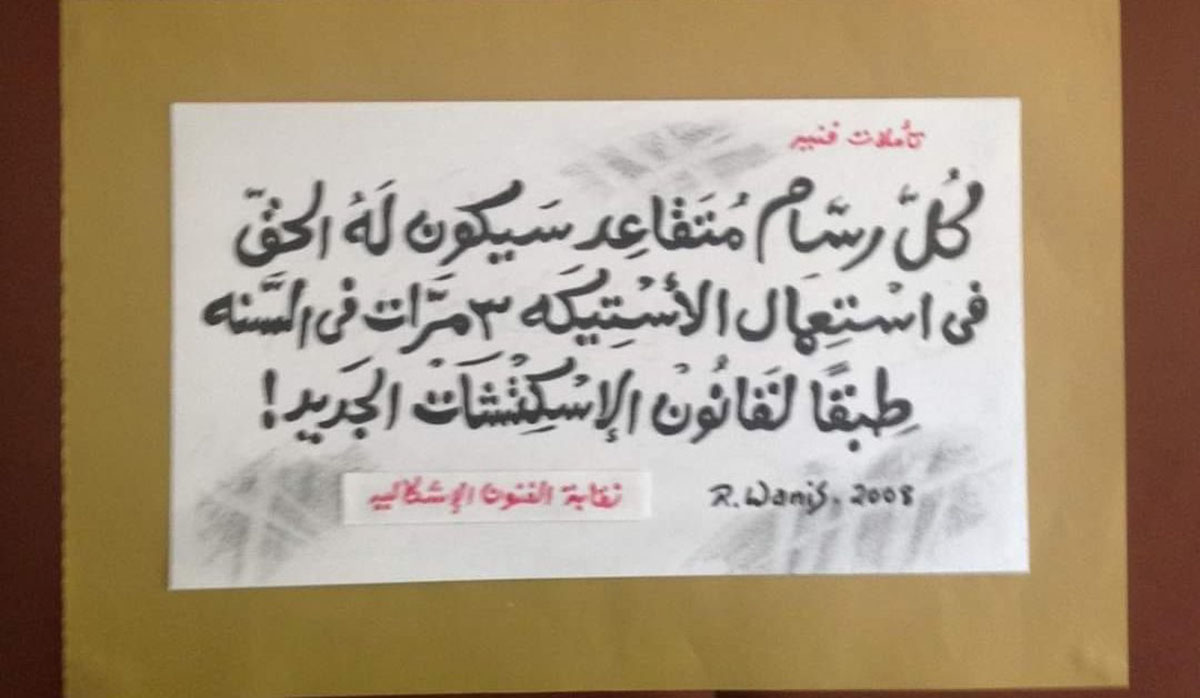 تأملات فنيه
كُلّ رسَّام مُتَقاعِد سَيكون لَهُ الحَقّ
فى اسْتعِمال الأسْتِيكَه ٣ مَرَّات فى السَّنه
طِبقًا لقَانُون الإسْكِتْشَات الجَديد!
نقابة الفنون الإشكاليه
R. Wanis. 2008